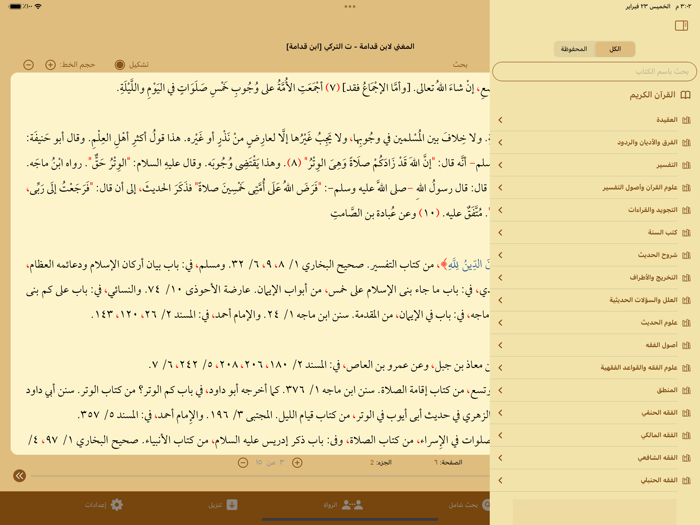 ٣:٠٢ م الخميس ٢٣ فبراير
الكل
المحفوظة
بحث باسم الكتاب
القرآن الكريم
العقيدة
الفرق والأديان والردود
التفسير
علوم القرآن وأصول التفسير
التجويد والقراءات
كتب السنة
شروح الحديث
التخريج والأطراف
العلل والسؤلات الحديثية
علوم الحديث
أصول الفقه
علوم الفقه والقواعد الفقهية
المنطق
الفقه الحنفي
الفقه المالكي
الفقه الشافعي
الفقه الحنبلي
المغني لابن قدامة - ت التركي [ابن قدامة]
بحث
تشكيل
حجم الخط:
إنْ شاءَ اللهُ تعالى. [وأمَّا الإِجْمَاعُ فقد] (٧) أجْمَعَتِ الأُمَّةُ على وُجُوبِ خَمْسِ صَلَوَاتٍ في اليَوْمِ واللَّيْلَةِ.
ولا خِلافَ بين المُسْلمين في وجُوبِها، ولا يَجِبُ غَيْرُها إلَّا لعارِضٍ مِنْ نَذْرٍ أو غَيْرِه. هذا قولُ أكثرِ أهْلِ العِلْمِ. وقال أبو حَنيفَة:
أنَّه قال: "إنَّ اللهَ قَدْ زَادَكُمْ صَلَاةً وَهِىَ الوِتْرُ" (٨). وهذا يَقْتَضِى وُجُوبَه. وقال عليهِ السلام: "الوِتْرُ حَقٌّ". رواه ابنُ ماجَه.
قال: قال رسولُ اللهِ -صلى اللهُ عليه وسلم-: "فَرَضَ اللهُ عَلَى أُمَّتِى خَمْسِينَ صلاةً" فذَكَرَ الحديثَ، إلى أن قال: "فَرَجَعْتُ إلَى رَبِّى،
مُتَّفَقٌ عليه. (١٠) وعن عُبادة بن الصَّامِتِ
الدِّينَ لِلَّهِ﴾، من كتاب التفسير. صحيح البخاري ١/ ٨، ٩، ٦/ ٣٢. ومسلم، في: باب بيان أركان الإسلام ودعائمه العظام،
في: باب ما جاء بنى الإسلام على خمس، من أبواب الإيمان. عارضة الأحوذى ١٠/ ٧٤. والنسائي، في: باب على كم بنى
ماجه، في: باب في الإيمان، من المقدمة. سنن ابن ماجه ١/ ٢٤. والإمام أحمد، في: المسند ٢/ ٢٦، ١٢٠، ١٤٣.
معاذ بن جبل، وعن عمرو بن العاص، في: المسند ٢/ ١٨٠، ٢٠٦، ٢٠٨، ٥/ ٢٤٢، ٦/ ٧.
وتسع، من كتاب إقامة الصلاة. سنن ابن ماجه ١/ ٣٧٦. كما أخرجه أبو داود، في باب كم الوتر؟ من كتاب الوتر. سنن أبي داود
الزهري في حديث أبى أيوب في الوتر، من كتاب قيام الليل. المجتبى ٣/ ١٩٦. والإمام أحمد، في: المسند ٥/ ٣٥٧.
في الإسراء، من كتاب الصلاة، وفى: باب ذكر إدريس عليه السلام، من كتاب الأنبياء. صحيح البخاري ١/ ٩٧، ٤/
الصفحة: ٦
الجزء: 2
٣ من ١٥
بحث شامل
الرواة
تنزيل
إعدادات